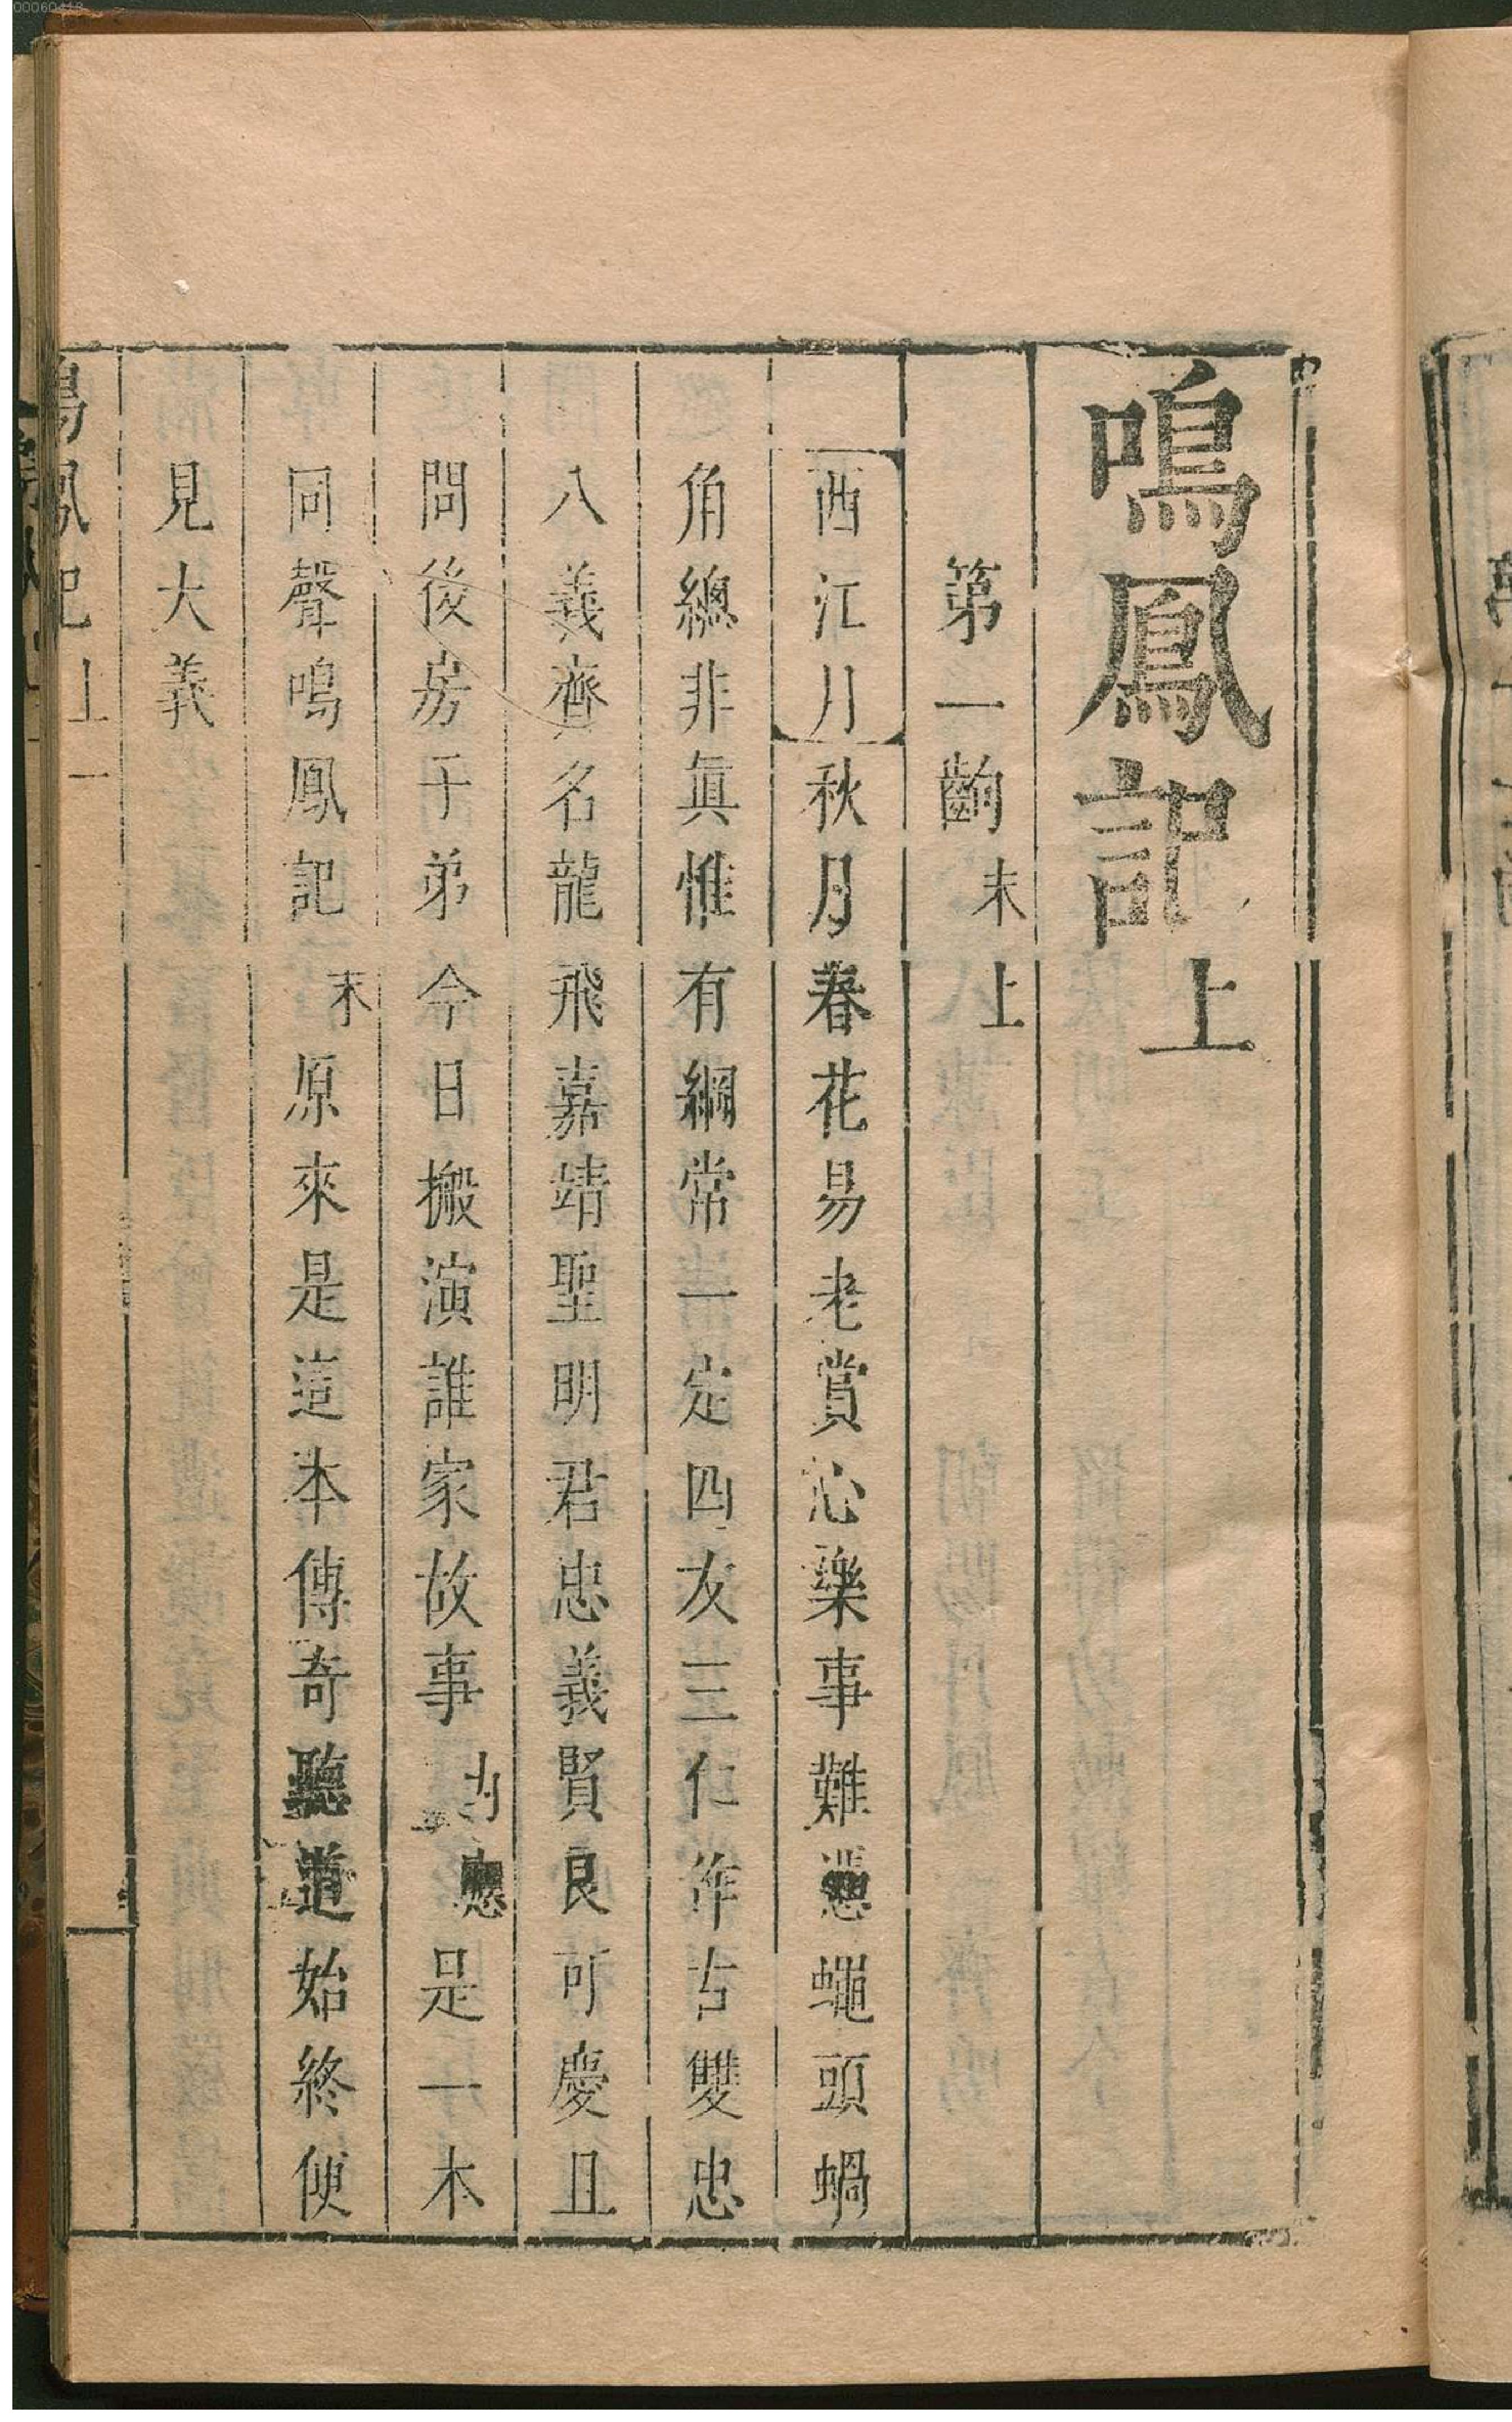 鳴鳳記上
第一齣末上
西江月秋月春花易老賞心樂事難憑蠅頭蝸
角總非眞惟有綱常一定四友三仁作古雙忠
八義齊名龍飛嘉靖聖明君忠義賢良可慶且
問後房子弟今日搬演誰家故事內應是一本
同聲鳴鳳記末原來是這本傳奇聽道始終便
見大義
鳴鳳記上一
00060418